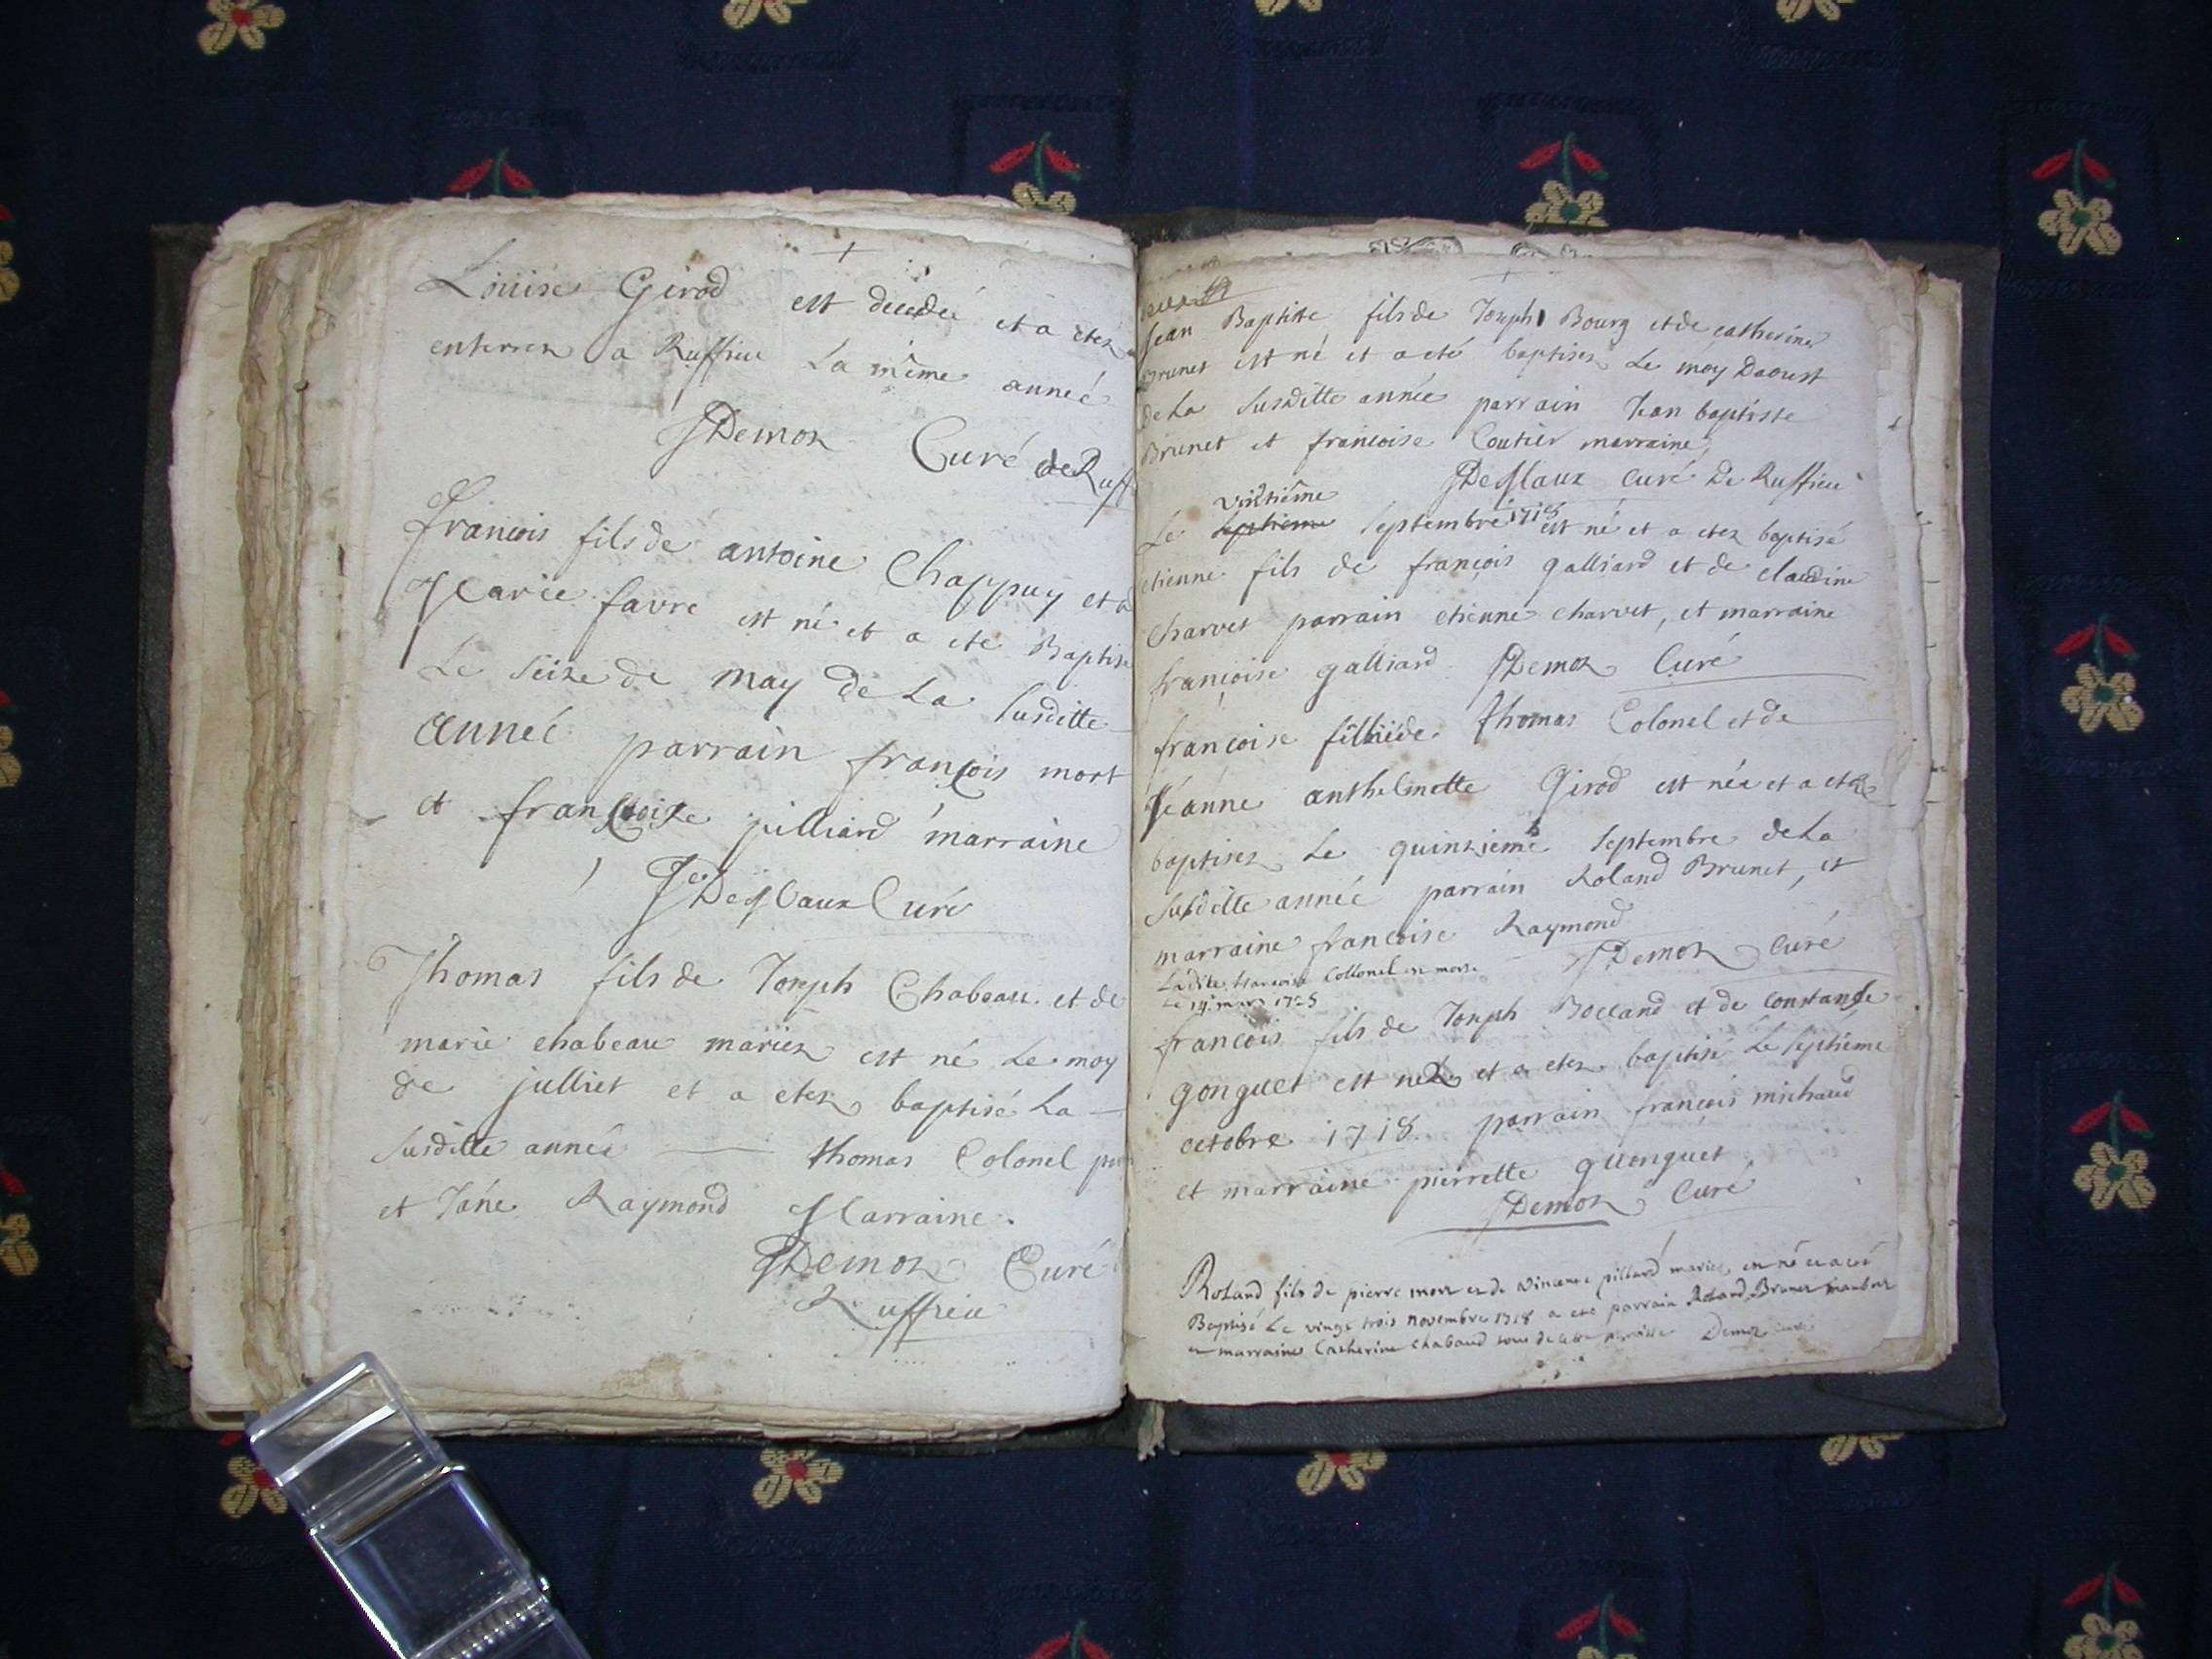 Louise Girod est decedeé et a etez
enterrez a Ruffieu La même anneé
JDemoz Curé de Ruff
francois fils de antoine Chappuy et d
Marie favre est né et a ete Baptise
Le Seize de may de La Susditte
anneé parrain francois mort
et francoise jilliard marraine
Curé
Thomas fils de Joseph Chabeau et de
marie chabeau mariez est né Le moy
de julliet et a etez baptisé La
Susditte anneé thomas Colonel par
et Jane Raymond Marraine.
JDemoz Curé
Ruffieu
Jean Baptiste fils de Joseph Bourg et de catherine
Brunet est né et a eté baptisez Le moy Daoust
de La Susditte anneé parrain Jean baptiste
Brunet et francoise Coutier marraine
curé De Ruffieu
vintiême
Le septieme Septembre 1718 est né et a etez baptisé
etienne fils de françois galliard et de claudine
Charvet parrain etienne charvet, et marraine
françoise galliard JDemoz Curé
françoise fillie de thomas Colonel et de
Jeanne anthelmette Girod est née et a etez
baptisez Le quinzieme Septembre de La
Susditte anneé parrain Roland Brunet, et
marraine francoise Raymond
JDemoz Curé
La dite francoise Collonel est morte
Le 19 mars 1725
francois fils de Joseph Boccand et de constance
gonguet est nez et a etez baptisé Le septiéme
octobre 1718 parrain francois michaud
et marraine pierrette guonguet
JDemoz Curé
Roland fils de pierre mort et de vincence pilliard mariez est né et a eté
Baptisé Le vingt trois novembre 1718 a eté parrain Roland Brunet
et marraine Catherine chabaud tous de cette parroisse Demoz curé